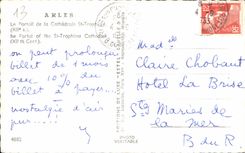 13
ARLES
Le Portail de la Cathédrale St-Trophime
(XIIe s.)
The Portal of the St-Trophime Cathedral
(XIIth Cent.)
on peut prolonger
billet de 1 mois
avec 10% du
billet à payer...
nostalgie d'air
pur......
4682
PHOTO
VÉRITABLE
Mad
Claire Chobaut
Hotel La Brise
Stes Maries de
la mer
B du R